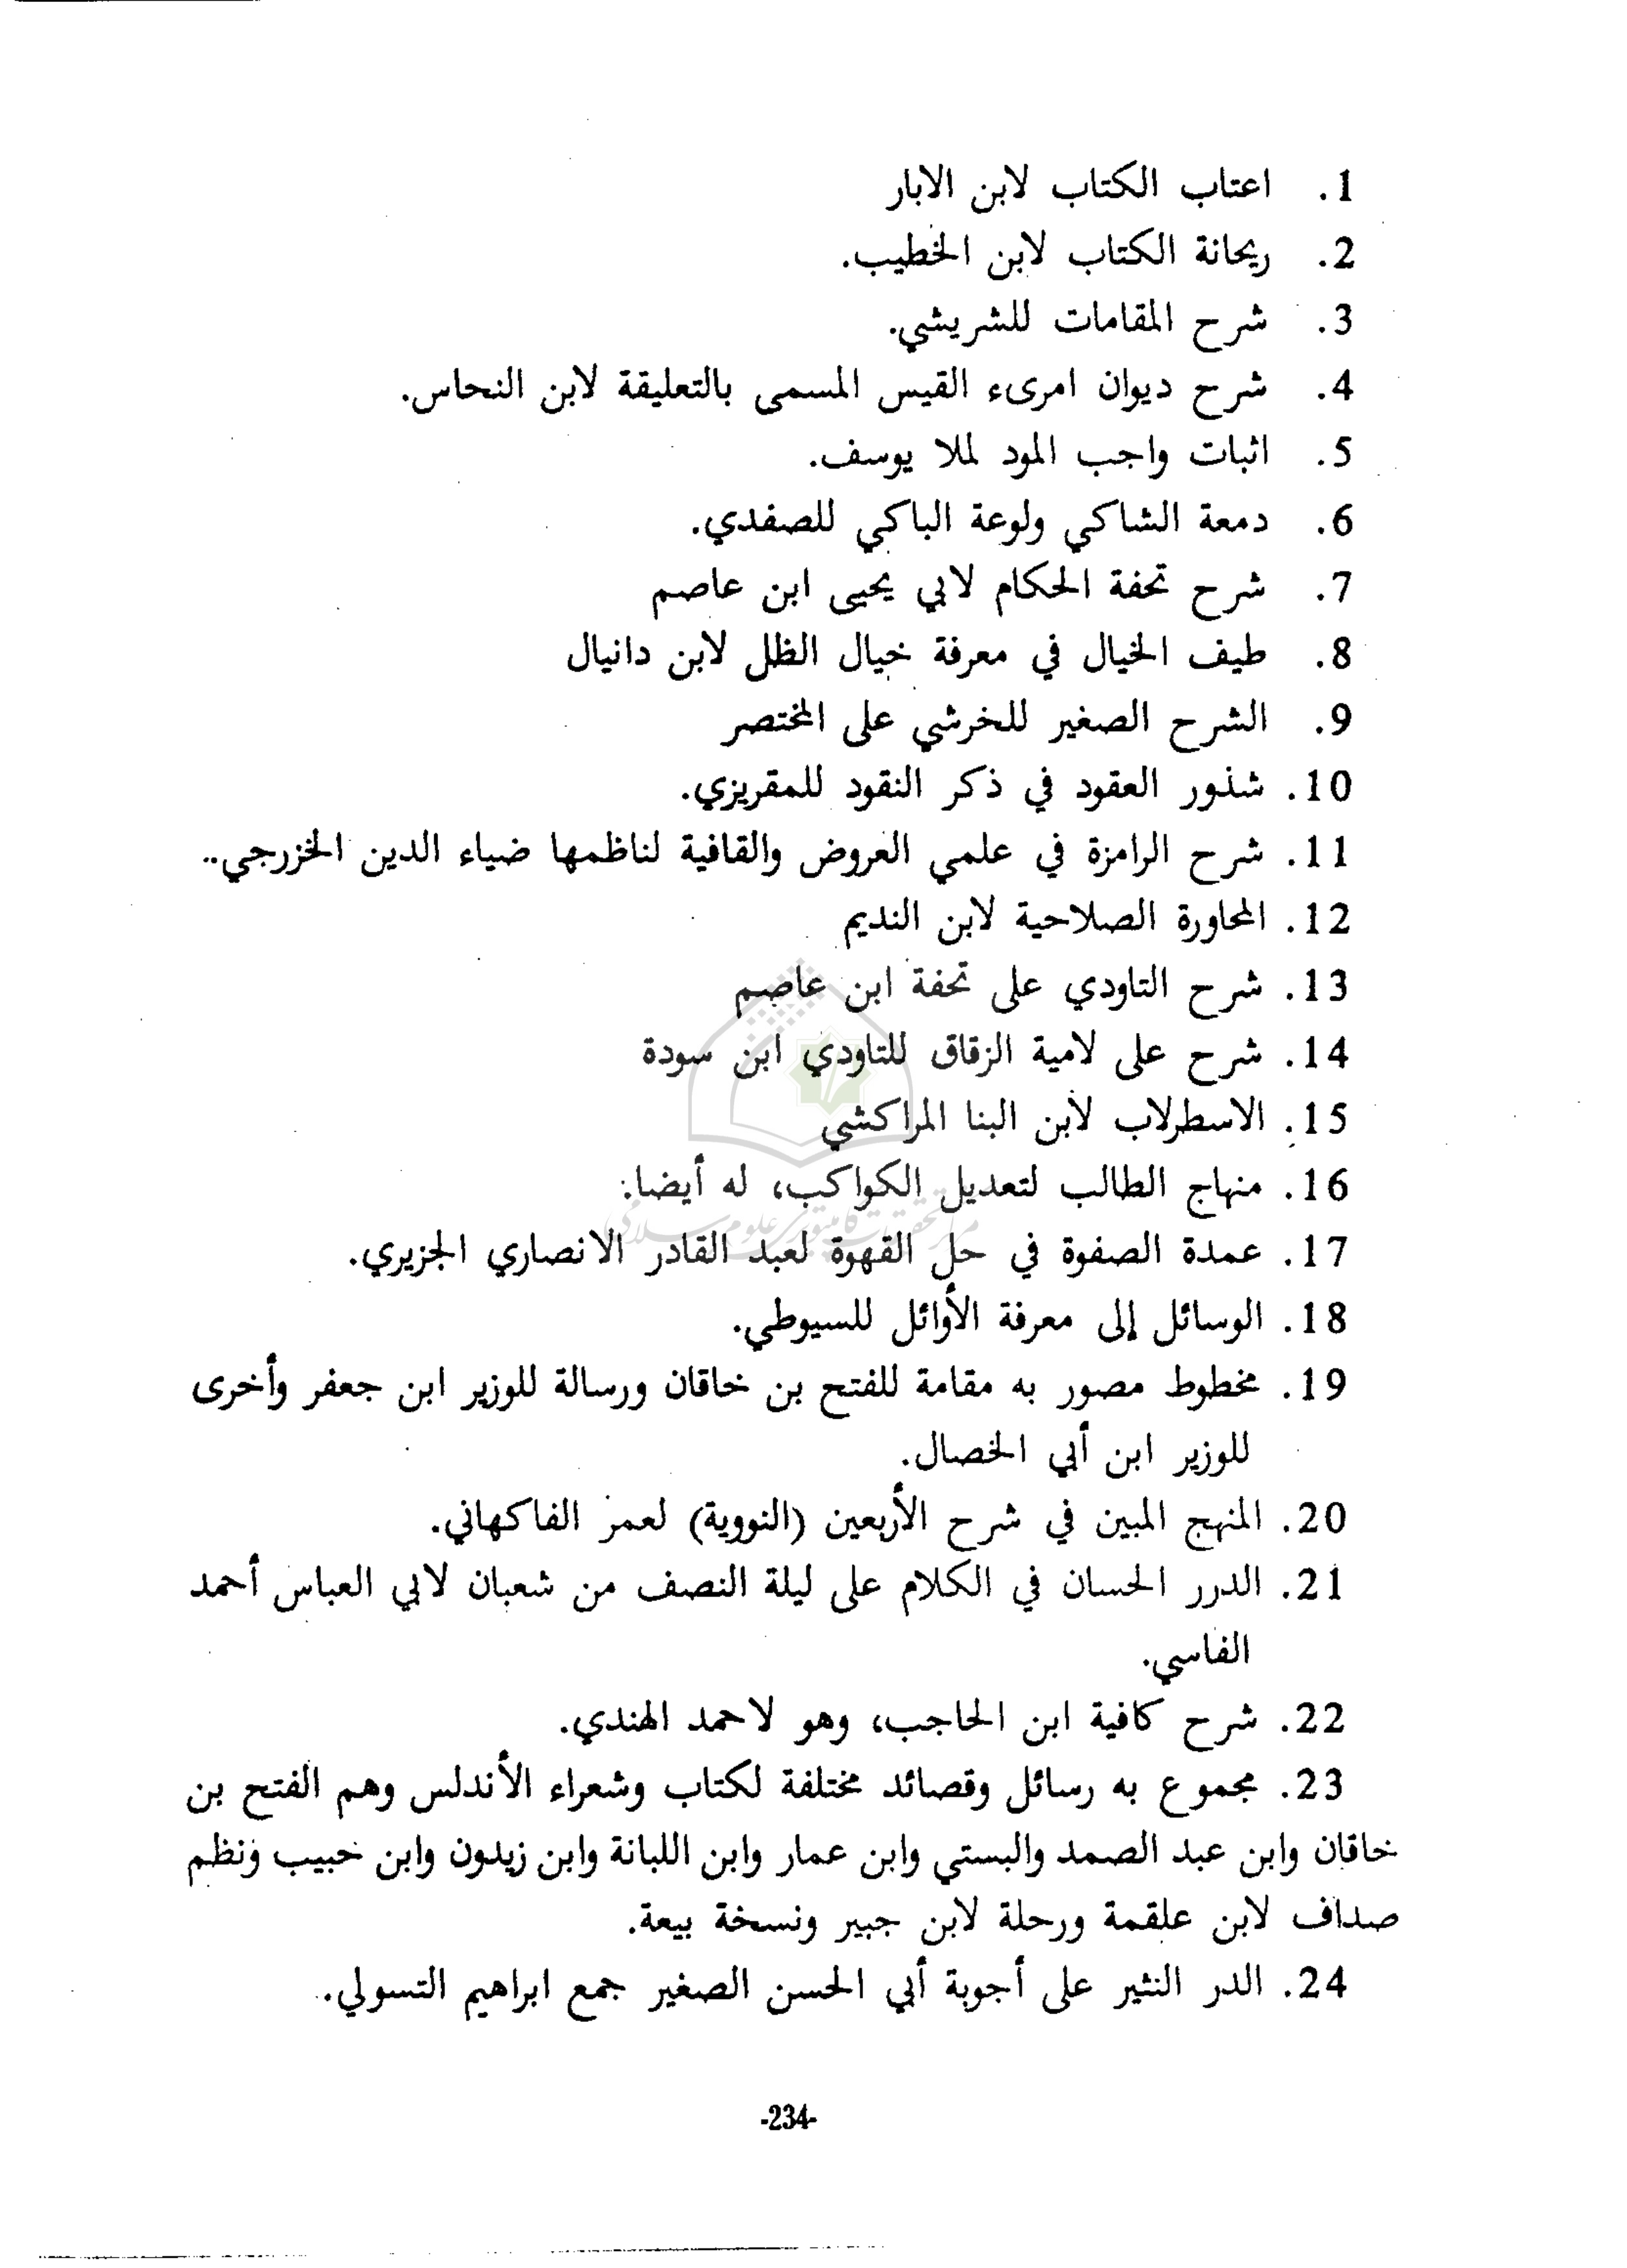 1. اعتاب الكتاب لابن الابار
2. ريحانة الكتاب لابن الخطيب.
3. شرح المقامات للشريشي.
4. شرح ديوان امرىء القيس المسمى بالتعليقة لابن النحاس.
5. اثبات واجب المود لملا يوسف.
6. دمعة الشاكي ولوعة الباكي للصفدي.
7. شرح تحفة الحكام لابي يحيى ابن عاصم
8. طيف الخيال في معرفة خيال الظل لابن دانيال
9. الشرح الصغير للخرشي على المختصر
10. شذور العقود في ذكر النقود للمقريزي.
11. شرح الرامزة في علمي العروض والقافية لناظمها ضياء الدين الخزرجي..
12. المحاورة الصلاحية لابن النديم
13. شرح التاودي على تحفة ابن عاصم
14. شرح على لامية الزقاق للتاودي ابن سودة
15. الاسطرلاب لابن البنا المراكشي
16. منهاج الطالب لتعديل الكواكب، له أيضا:
مركز تحقيقات كامپيوترى علوم اسلامى
17. عمدة الصفوة في حل القهوة لعبد القادر الانصاري الجزيري.
18. الوسائل إلى معرفة الأوائل للسيوطي.
19. مخطوط مصور به مقامة للفتح بن خاقان ورسالة للوزير ابن جعفر وأخرى
للوزير ابن أبي الخصال.
20. المنهج المبين في شرح الأربعين (النووية) لعمر الفاكهاني.
21. الدرر الحسان في الكلام على ليلة النصف من شعبان لابي العباس أحمد
الفاسي.
22. شرح كافية ابن الحاجب، وهو لاحمد الهندي.
23. مجموع به رسائل وقصائد مختلفة لكتاب وشعراء الأندلس وهم الفتح بن
خاقان وابن عبد الصمد والبستي وابن عمار وابن اللبانة وابن زيدون وابن حبيب ونظم
صداف لابن علقمة ورحلة لابن جبير ونسخة بيعة.
24. الدر النثير على أجوبة أبي الحسن الصغير جمع ابراهيم التسولي.
-234-